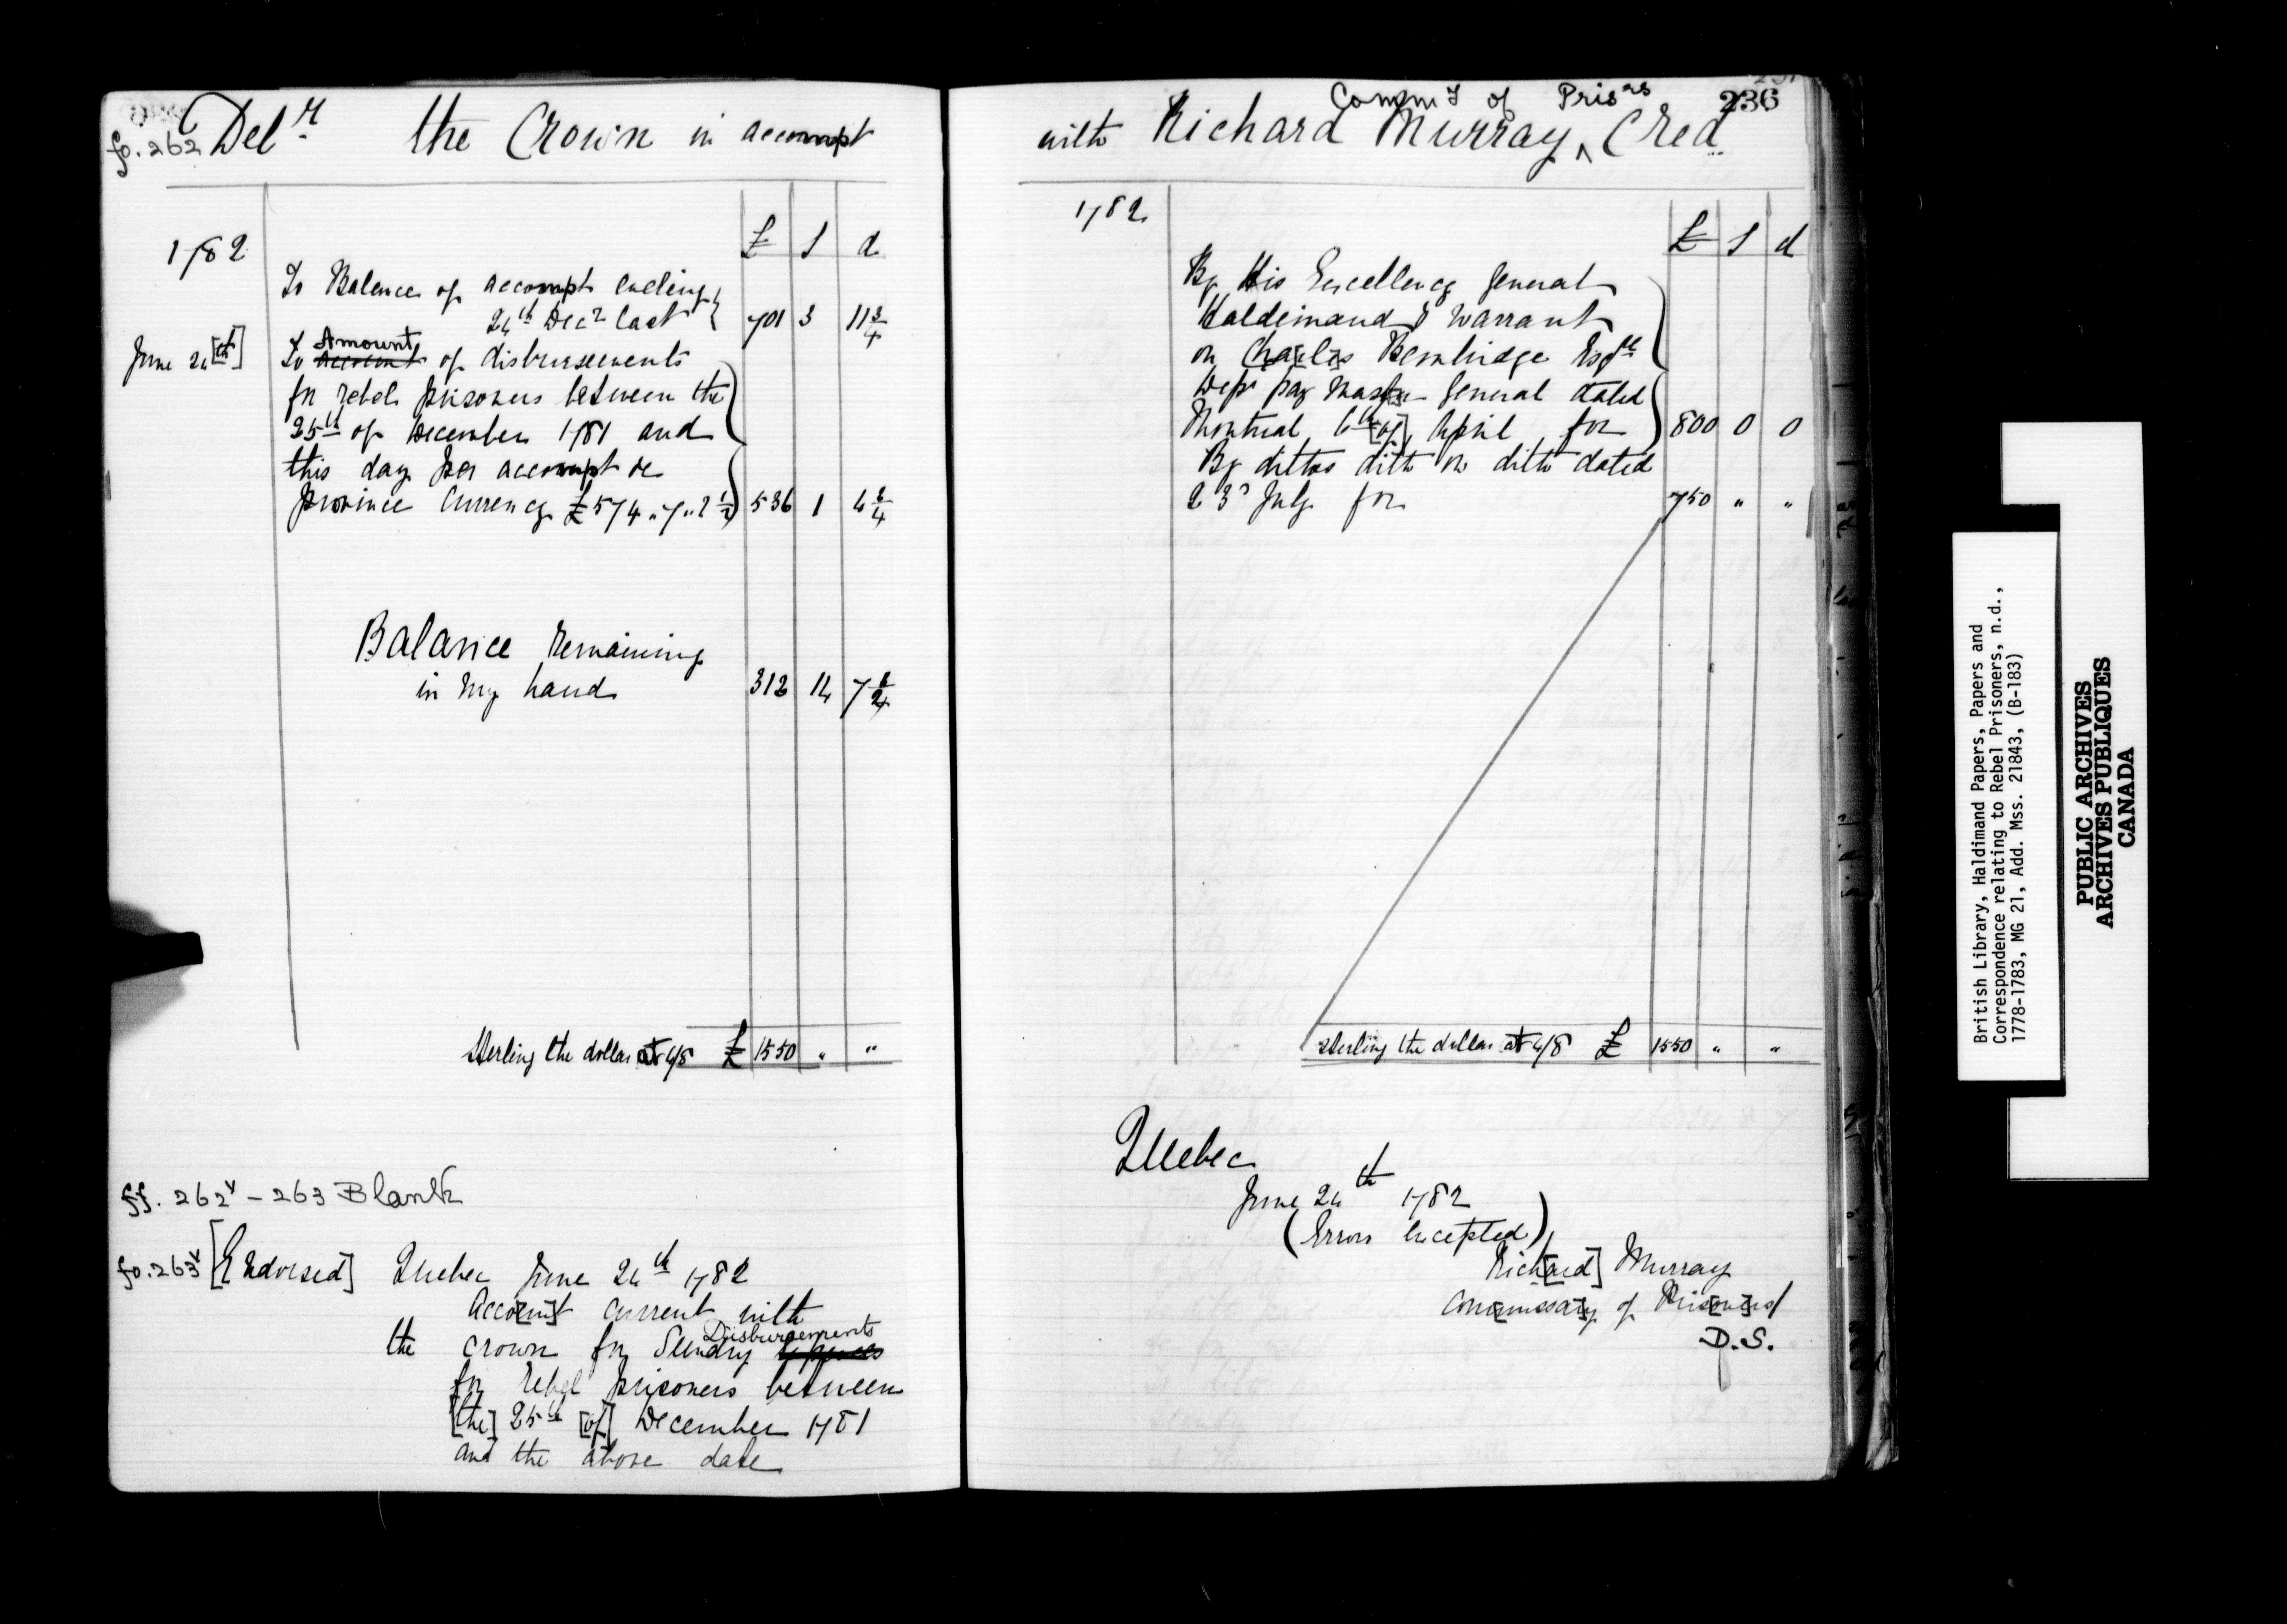 fo. 262 Debr. the Crown in accompt
1782
£ s d
To Balance of accompt ending
24th Decr last 701 3 11 3/4
June 24[th] To Amount account of disbursements
for rebel prisoners between the
25th of December 1781 and
this day per accompt de
province Currency £574 " 7 " 2 1/2 536 1 4 3/4
Balance remaining
in my hand 312 14 7 1/2
Sterling the dollar at 4/8 £ 1550 " "
ff. 262v - 263 Blank
fo. 263v [Endorsed] Quebec June 24th 1782
Acco[un]t current with
the crown for Sundry Disbursements expences
for rebel prisoners between
[the] 25th [of] December 1781
and the above date
236
Commy of Prisrs
with Richard Murray, ^ Cred
1782
£ s d
By His Excellency General
Haldimand's Warrant
on Cha[rle]s Bembridge Esqre
Dep: pay Mas[te]r General dated
Montreal 6th [of] April for 800 0 0
By dittos ditto on ditto dated
23d July for 750 " "
Sterling the dollar at 4/8 £ 1550 " "
Quebec
June 24th 1782
(Errors Excepted)
Rich[ard] Murray
Com[missar]y of Pris[one]rs
D.S.
British Library, Haldimand Papers, Papers and
Correspondence relating to Rebel Prisoners, n.d.,
1778-1783, MG 21, Add. Mss. 21843, (B-183)
PUBLIC ARCHIVES
ARCHIVES PUBLIQUES
CANADA